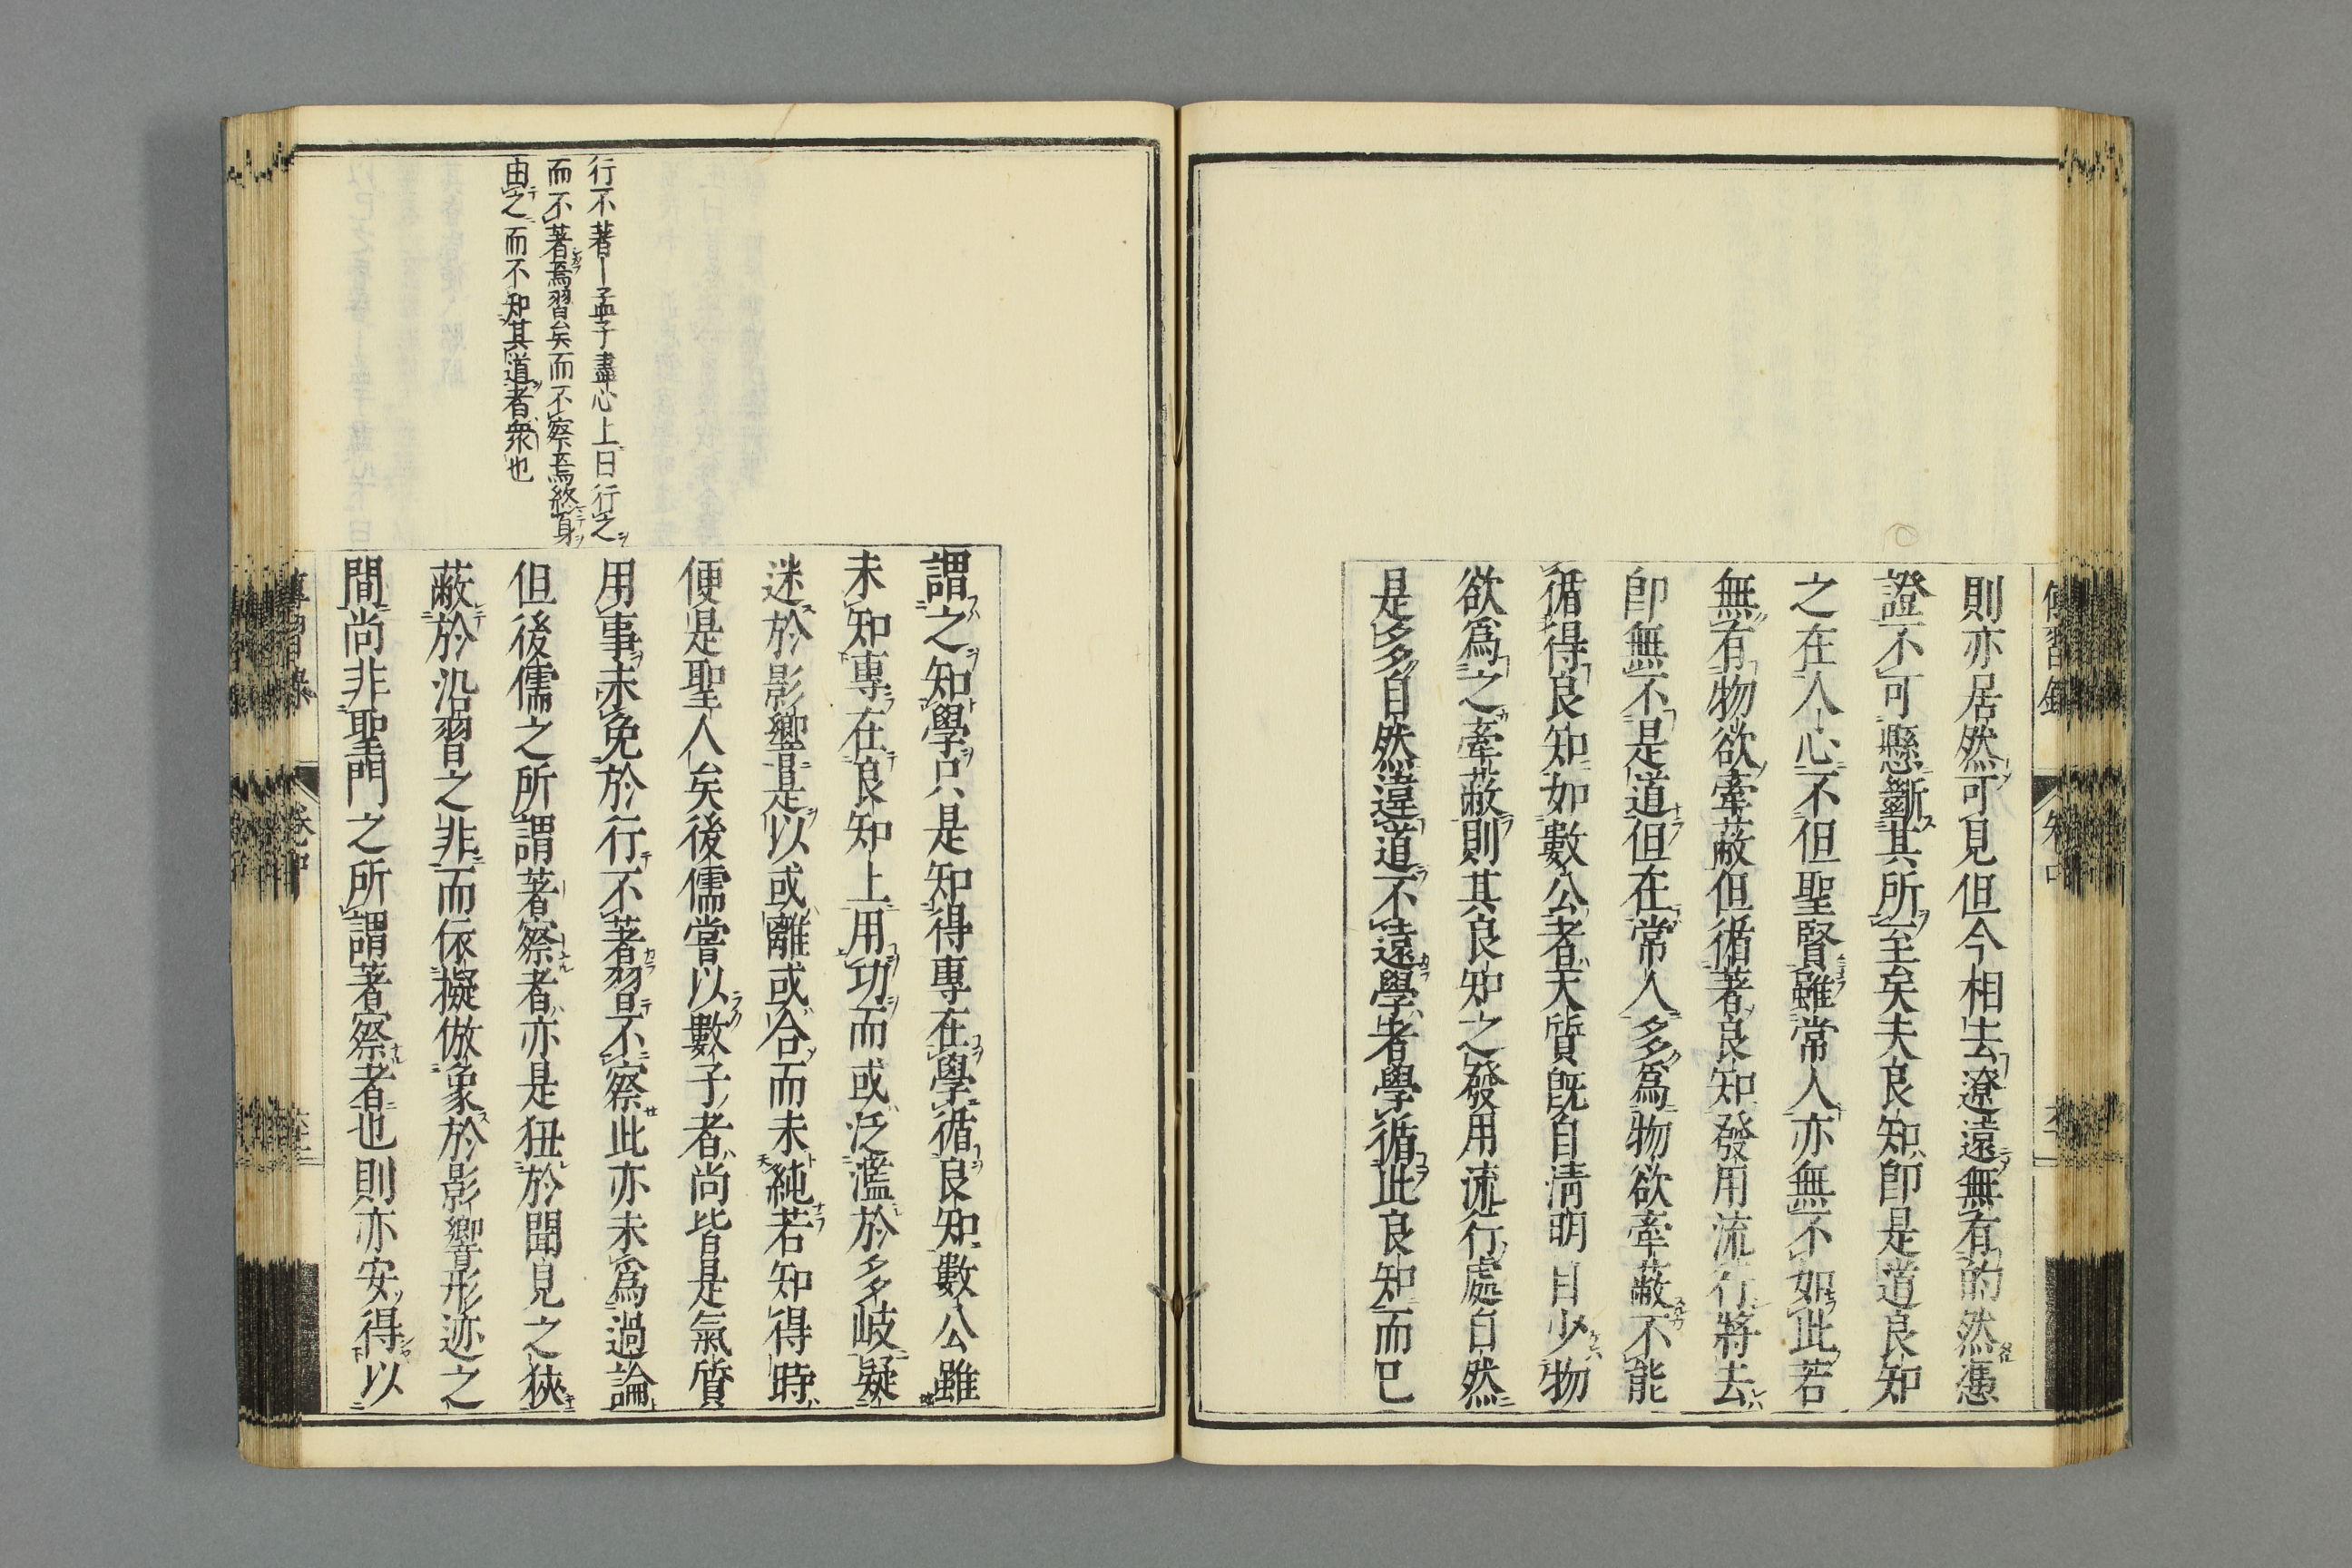 傳習録 卷中
則亦居然可見但今相去遼遠無有的然憑
證不可懸斷其所至矣夫良知卽是道良知
之在人心不但聖賢雖常人亦無不如此若
無有物欲牽蔽但循著良知發用流行將去
卽無不是道但在常人多爲物欲牽蔽不能
循得良知如數公者天質既自清明自少物
欲爲之牽蔽則其良知之發用流行處自然
是多自然違道不遠學者學循此良知而已
謂之知學只是知得專在學循良知數公雖
未知專在良知上用功而或泛濫於多岐疑
迷於影響是以或離或合而未純若知得時
便是聖人矣後儒嘗以數子者尚皆是氣質
用事未免於行不著習不察此亦未爲過論
但後儒之所謂著察者亦是狃於聞見之狹
蔽於沿習之非而依擬倣象於影響形迹之
間尚非聖門之所謂著察者也則亦安得以
行不著―孟子盡心上曰行之
而不著焉習矣而不察焉終身
由之而不知其道者衆也
傳習録 卷中